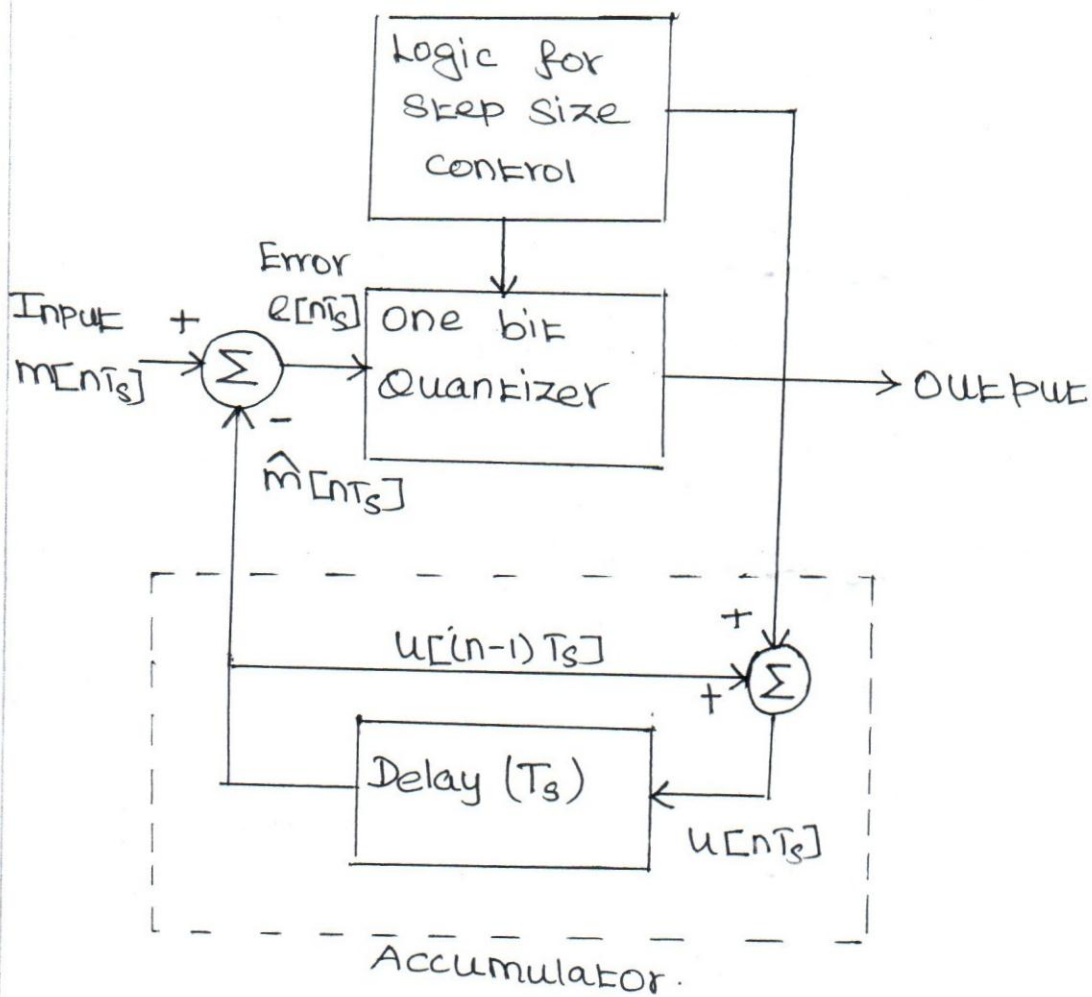 Logic for
Step Size
control
Error
e[nTs]
Input
+
m[nTs]
Σ
-
m̂[nTs]
One bit
Quantizer
Output
+
u[(n-1)Ts]
+
Σ
Delay (Ts)
u[nTs]
Accumulator.